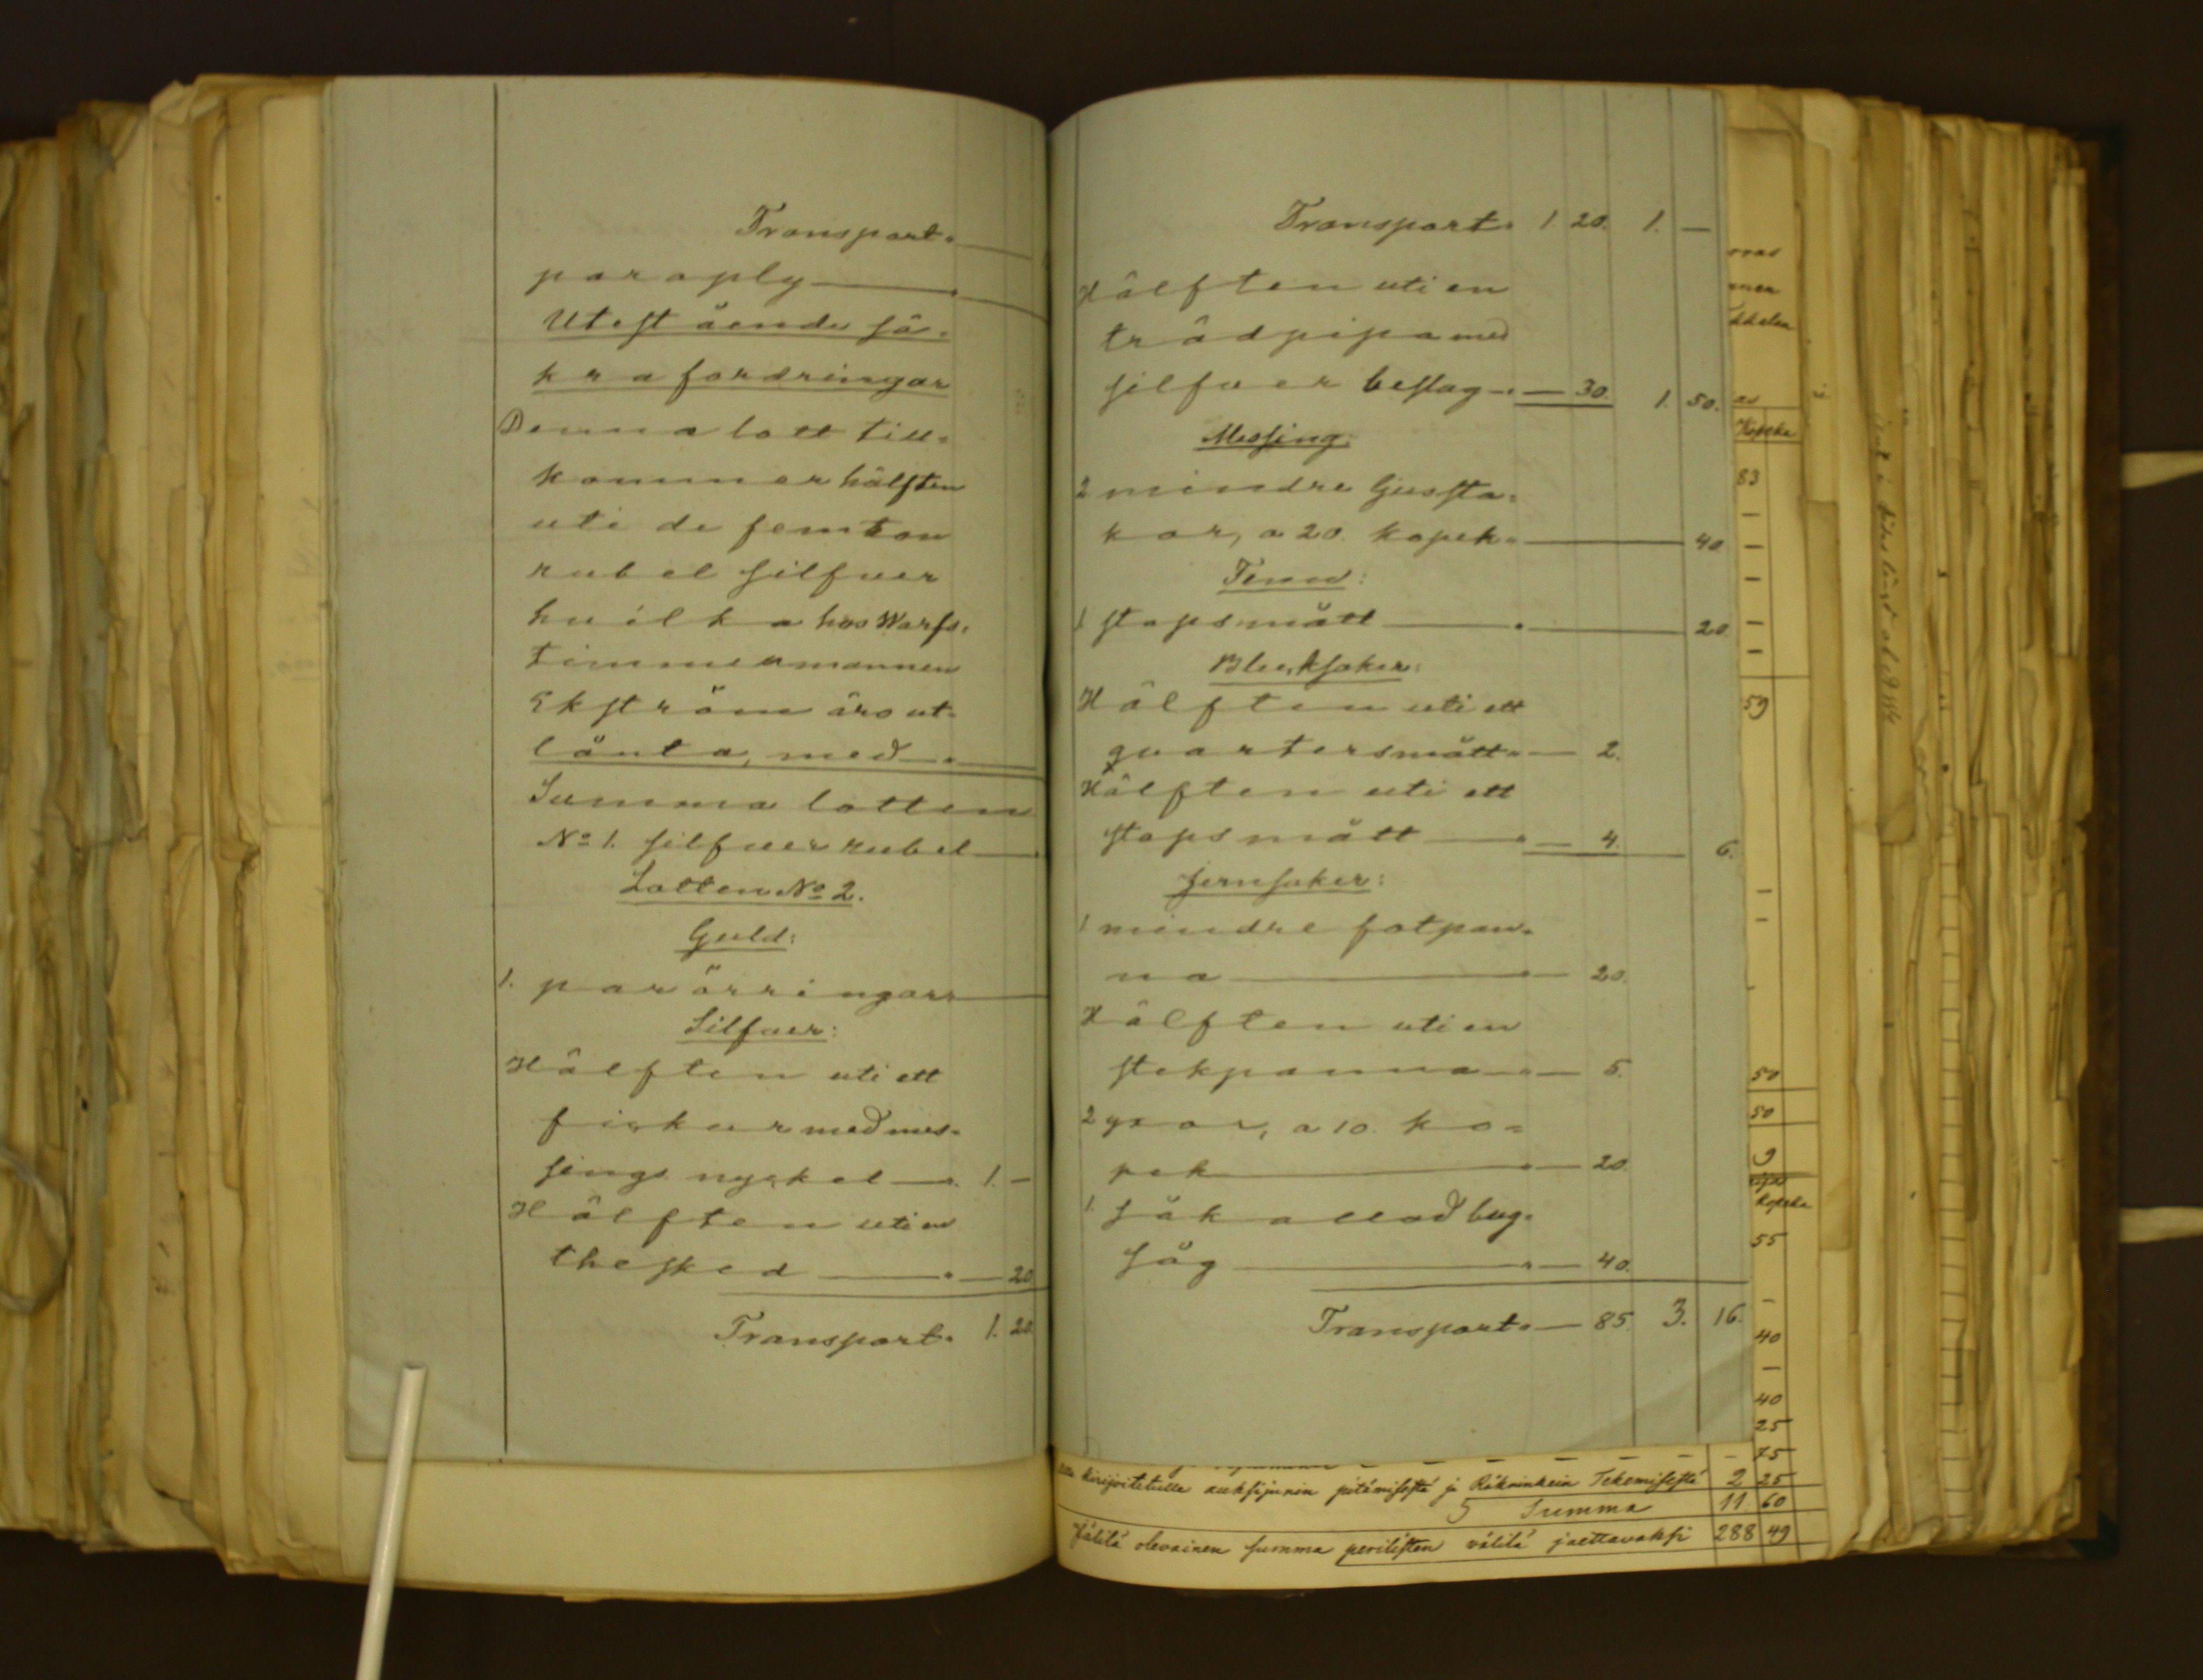 Transport.
paraply
Utestående sä-
kra fordringar
Denna lott till-
kommer hälften
uti de femton
rubel silfver
hvilka hos Warfs-
timmermannen
Ekström äro ut-
lånta, med
Summa lotten
No 1. silfver rubel
Lotten No 2.
Guld:
1. par örringar
Silfver:
Hälften uti ett
fickur med mes-
sings nyckel 1. —
Hälften uti en
thesked — 20
Transport. 1. 20.
Transport. 1. 20. 1. —
Hälften uti en
trädpipa med
silfver beslag — 30. 1. 50.
Messing:
2 mindre ljussta-
kar, a 20. kopek. 40.
Tenn:
1 stopsmått 20.
Blecksaker:
Hälften uti ett
qvartersmått — 2.
Hälften uti ett
stopsmått — 4. 6.
Jernsaker:
1 mindre fotpan-
na — 20.
Hälften uti en
stekpanna — 5.
2 yxor, a 10. ko-
pek — 20.
1. så kallad bug-
såg — 40.
Transport. — 85. 3. 16.
Kopeka
83
59
50
50
9
Kopeka
55
40
40
25
75
kirjoitetulle auksjunin pitämisestä ja Räkninkein Tekemisestä 2 25
Summa 11. 60
Jälilä olevainen summa perilisten välilä jaettavaksi 288 49